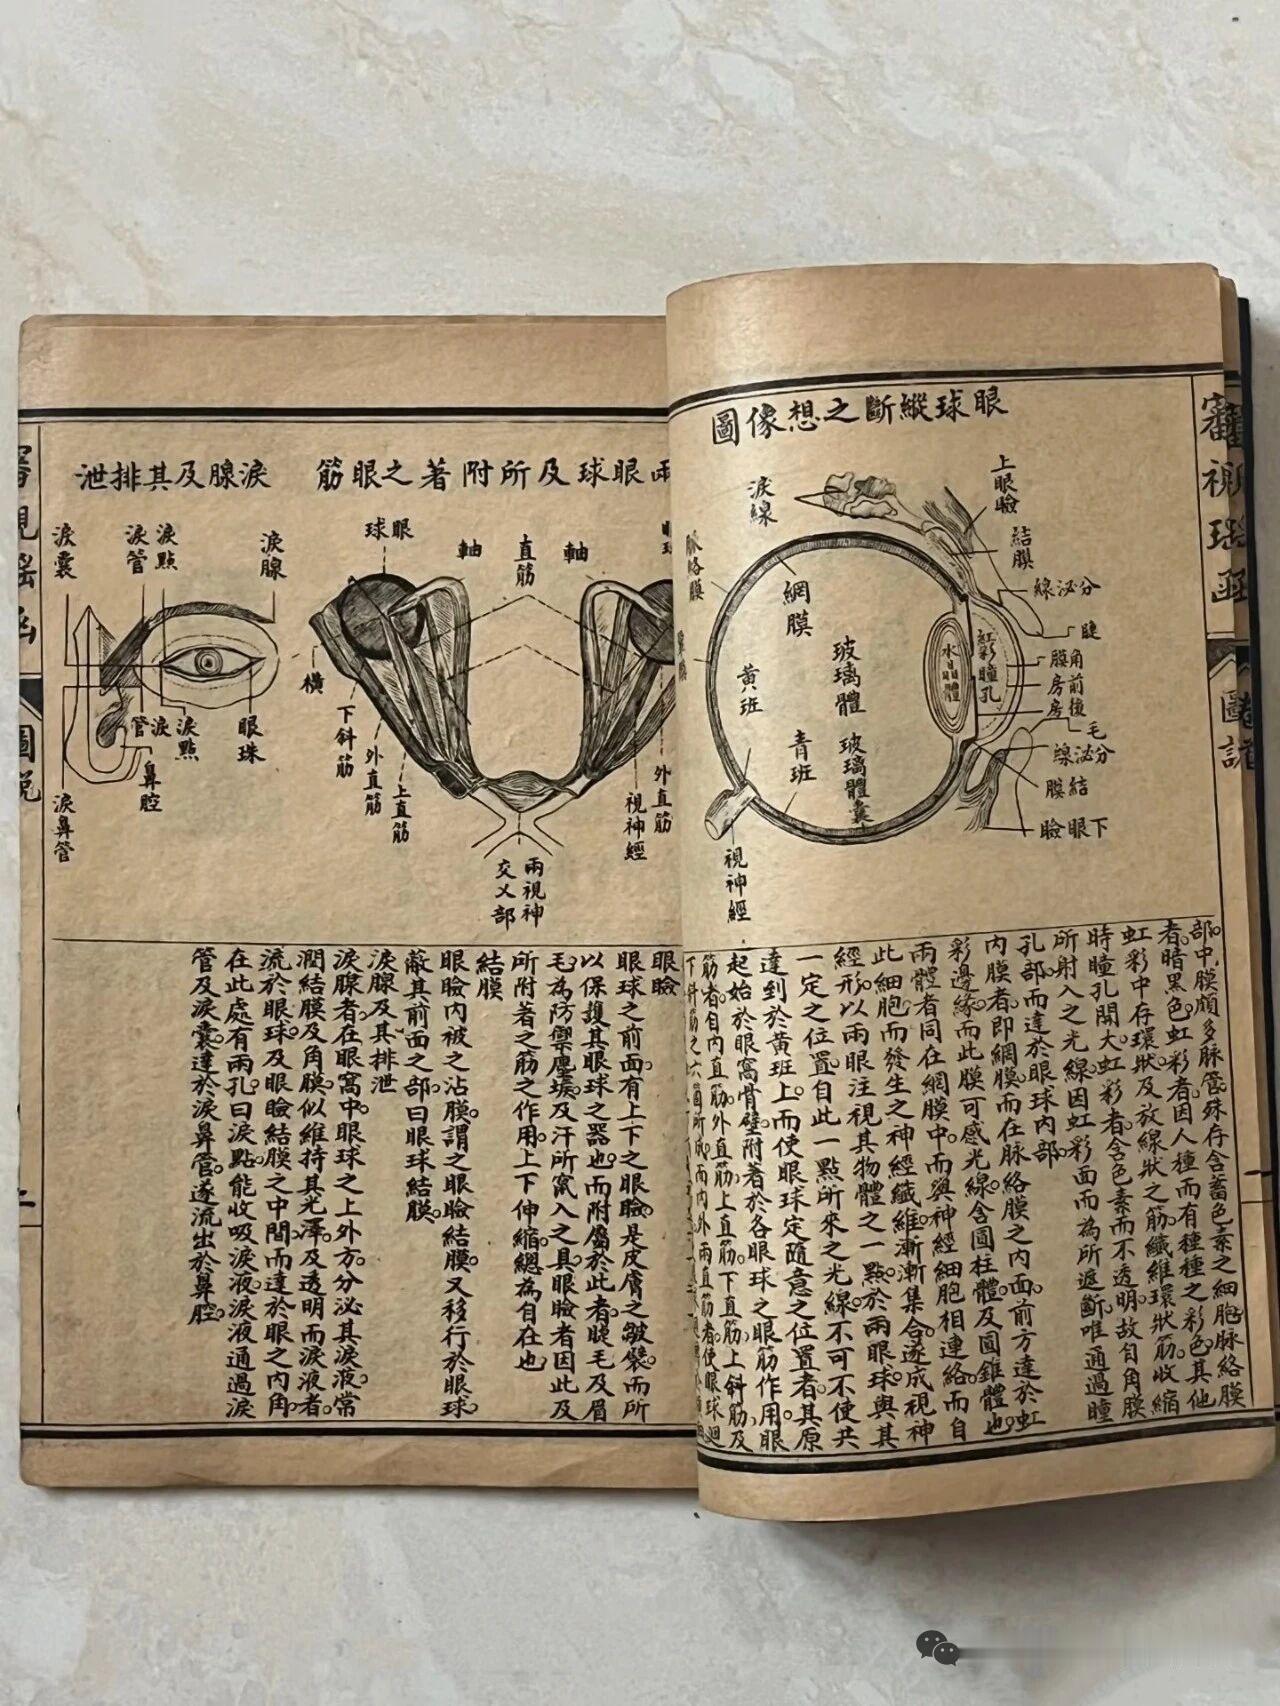 審視瑤函
圖説
眼球縱斷之想像圖
上眼瞼
結膜
分泌線
睫
角膜
前房
後房
毛
分泌線
結膜
下眼瞼
淚線
脈絡膜
網膜
黃班
青班
玻璃體
玻璃體囊
水晶體
虹彩
瞳孔
視神經
部中膜頗多脈管殊存含蓄色素之細胞脈絡膜
者暗黑色虹彩者因人種而有種種之彩色其他
虹彩中存環狀及放線狀之筋纖維環狀筋收縮
時瞳孔開大虹彩者含色素而不透明故自角膜
所射入之光線因虹彩面而為所遮斷唯通過瞳
孔部而達於眼球內部
內膜者即網膜而在脈絡膜之内面前方達於虹
彩邊緣而此膜可感光線含圓柱體及圓錐體也
兩體者同在網膜中而與神經細胞相連絡而自
此細胞而發生之神經纖維漸漸集合遂成視神
經形以兩眼注視其物體之一點於兩眼球與其
一定之位置自此一點所來之光線不可不使共
達到於黃班上而使眼球定隨意之位置者其原
起始於眼窩骨壁附著於各眼球之眼筋作用眼
筋者自内直筋外直筋上直筋下直筋上斜筋及
下斜筋之六箇所成而内外兩直筋者使眼球廻
兩眼球及所附著之眼筋
淚腺及其排泄
眼球
軸
直筋
軸
橫
下斜筋
外直筋
上直筋
兩視神
交乂部
視神經
外直筋
淚腺
淚點
淚管
淚囊
眼珠
淚點
淚管
鼻腔
淚鼻管
眼瞼
眼球之前面有上下之眼瞼是皮膚之皺襞而所
以保護其眼球之器也而附屬於此者睫毛及眉
毛為防禦塵埃及汗所竄入之具眼瞼者因此及
所附著之筋之作用上下伸縮總為自在也
結膜
眼瞼内被之沾膜謂之眼瞼結膜又移行於眼球
蔽其前面之部曰眼球結膜
淚腺及其排泄
淚腺者在眼窩中眼球之上外方分泌其淚液常
潤結膜及角膜似維持其光澤及透明而淚液者
流於眼球及眼瞼結膜之中間而達於眼之内角
在此處有兩孔曰淚點能收吸淚液淚液通過淚
管及淚囊達於淚鼻管遂流出於鼻腔